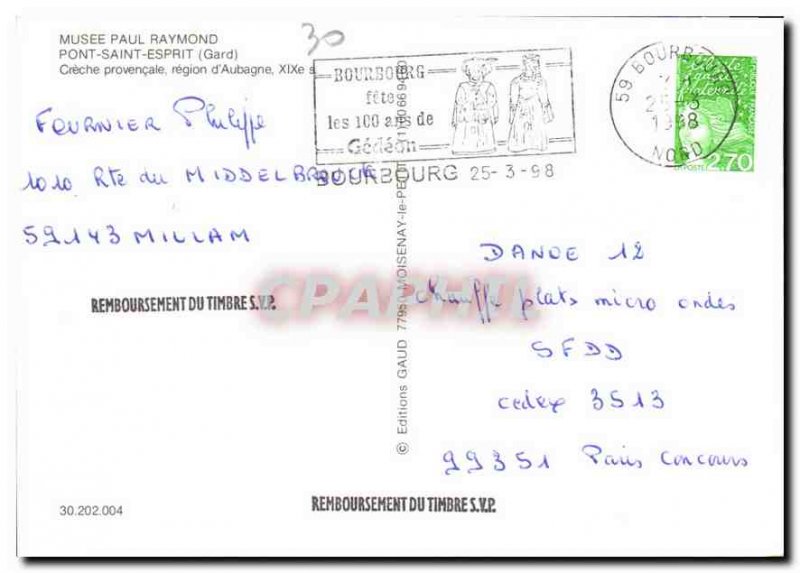 MUSEE PAUL RAYMOND
PONT-SAINT-ESPRIT (Gard)
Crèche provençale, région d'Aubagne, XIXe s
30
BOURBOURG
fête
les 100 ans de
Gédéon
BOURBOURG 25-3-98
59 BOURB
25-3
1998
NORD
Liberté
égalité
fraternité
LA POSTE
2,70
FOURNIER Philippe
1010 Rte du MIDDELBROUCK
59143 MILLAM
REMBOURSEMENT DU TIMBRE S.V.P.
CPAPHIL
© Editions GAUD 77950 MOISENAY-le-PE
DANOE 12
chauffe plats micro ondes
SFDD
cedex 3513
99351 Paris Concours
30.202.004
REMBOURSEMENT DU TIMBRE S.V.P.